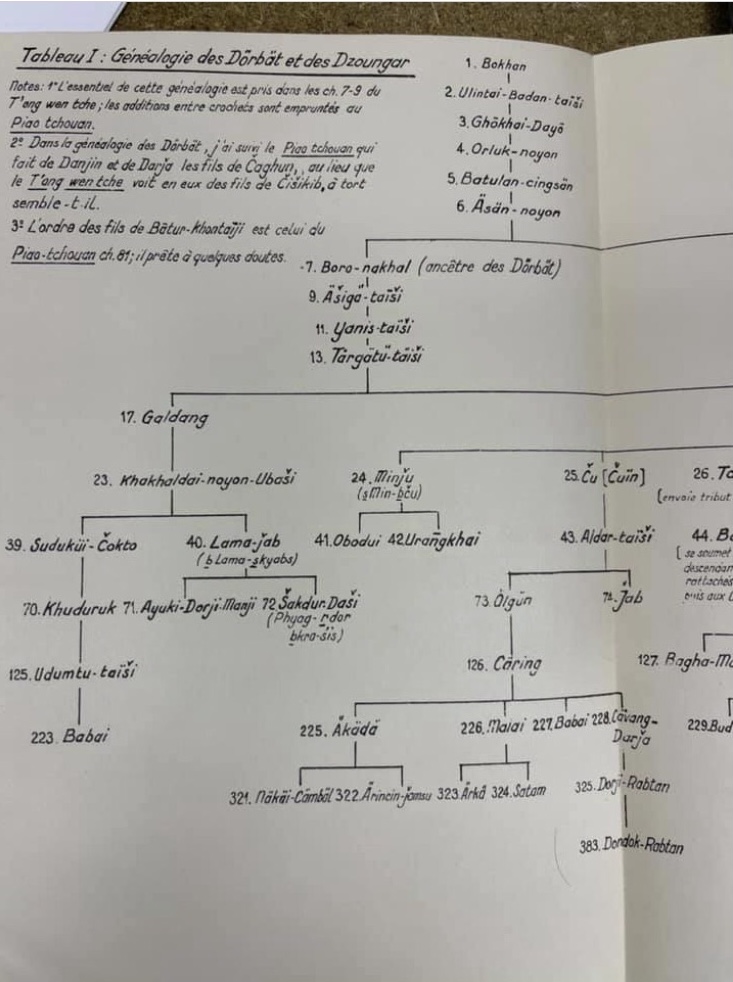 Tableau I : Généalogie des Dörbät et des Dzoungar
Notes: 1º L'essentiel de cette généalogie est pris dans les ch. 7-9 du
T'ong wen tche; les additions entre crochets sont empruntés au
Piao tchouan.
2º Dans la généalogie des Dörbät, j'ai suivi le Piao tchouan qui
fait de Danjin et de Darja les fils de Čaghun, au lieu que
le T'ong wen tche voit en eux des fils de Čišikib, à tort
semble-t-il.
3º L'ordre des fils de Bātur-Khontaiji est celui du
Piao-tchouan ch. 81; il prête à quelques doutes.
1. Bokhan
2. Ulintai-Badan-taïši
3. Ghōkhai-Dayō
4. Orluk-noyon
5. Batulan-cingsän
6. Äsän-noyon
7. Boro-nakhal (ancêtre des Dörbät)
9. Äšigä-taïši
11. Yanis-taïši
13. Tärgätü-täïši
17. Galdang
23. Khakhaldai-noyon-Ubaši
24. Minǰu
(sMin-bču)
25. Ču [Čuïn]
26. 
[envoie tribut
39. Suduküi-Čokto
40. Lama-ǰab
(bLama-skyabs)
41. Obodui 42. Urangkhai
43. Aldar-taïši
44. 
[se soumet
70. Khuduruk 71. Ayuki-Dorji-Manji 72. Šakdur-Daši
(Phyag-rdor
bkra-šis)
73. Ölgün
74. Jab
125. Udumtu-taïši
126. Cäring
127. Bagha-
223. Babai
225. Äkädä
226. Malai 227. Babai 228. Cävang-
Darǰa
229. 
321. Näkäi-Cämbäl 322. Ärincin-ǰamsu 323. Ärkä 324. Satam
325. Dorji-Rabtan
383. Dondok-Rabtan